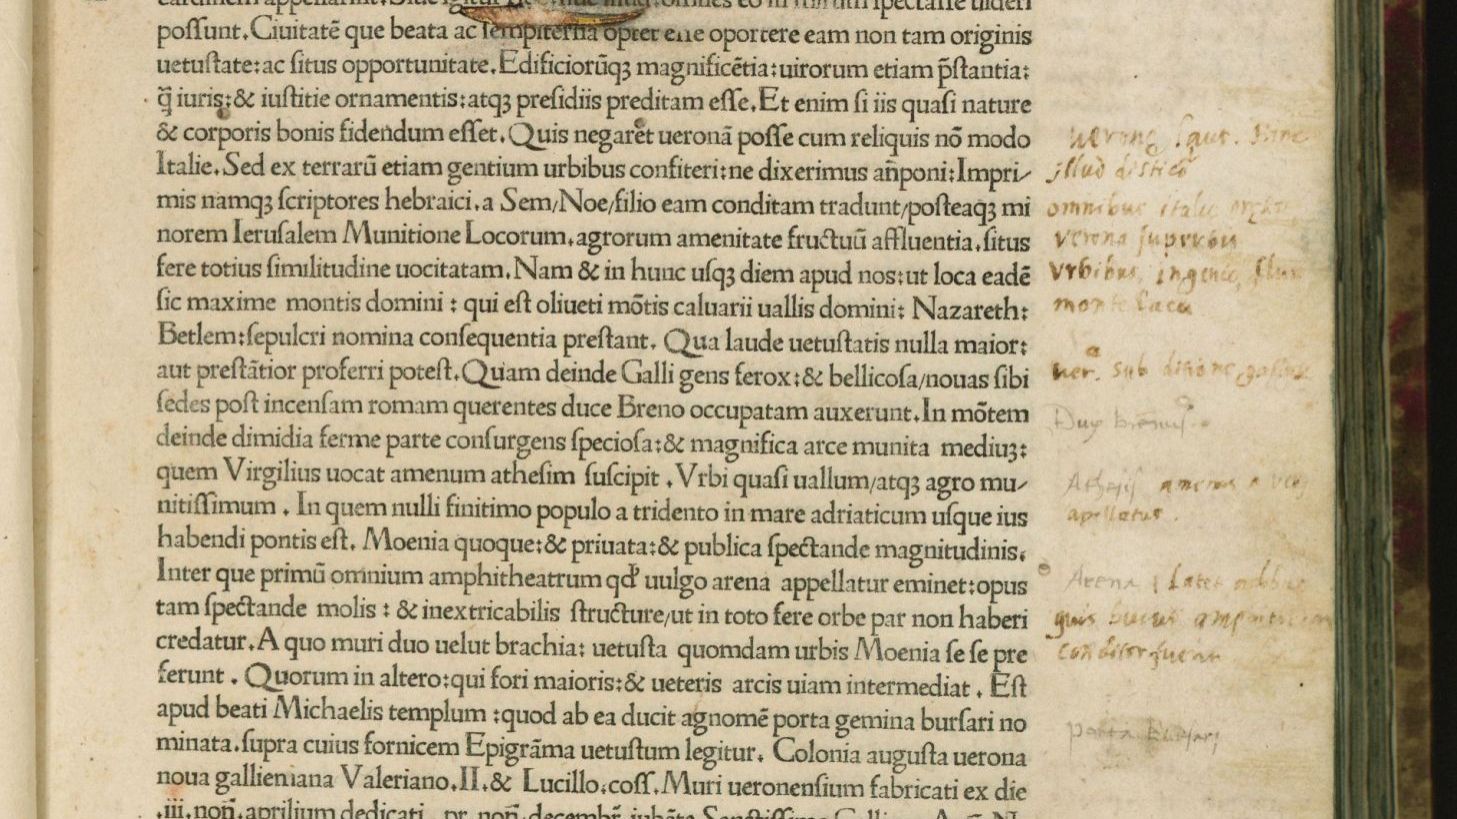 possunt. Ciuitatē que beata ac sempiterna optet esse oportere eam non tam originis
uetustate: ac situs opportunitate. Edificiorūqꝫ magnificētia: uirorum etiam p̄stantia:
q̄ iuris: & iustitie ornamentis: atqꝫ presidiis preditam esse. Et enim si iis quasi nature
& corporis bonis fidendum esset. Quis negaret ueronā posse cum reliquis nō modo
Italie. Sed ex terrarū etiam gentium urbibus confiteri: ne dixerimus an̄poni: Impri/
mis namqꝫ scriptores hebraici. a Sem/Noe/filio eam conditam tradunt/posteaqꝫ mi
norem Ierusalem Munitione Locorum. agrorum amenitate fructuū affluentia. situs
fere totius similitudine uocitatam. Nam & in hunc usqꝫ diem apud nos: ut loca eadē
sic maxime montis domini : qui est oliueti mōtis caluarii uallis domini: Nazareth:
Betlem: sepulcri nomina consequentia prestant. Qua laude uetustatis nulla maior:
aut prestātior proferri potest. Quam deinde Galli gens ferox: & bellicosa/nouas sibi
sedes post incensam romam querentes duce Breno occupatam auxerunt. In mōtem
deinde dimidia ferme parte consurgens speciosa: & magnifica arce munita mediuꝫ:
quem Virgilius uocat amenum athesim suscipit . Vrbi quasi uallum/atqꝫ agro mu/
nitissimum . In quem nulli finitimo populo a tridento in mare adriaticum usque ius
habendi pontis est. Moenia quoque: & priuata: & publica spectande magnitudinis.
Inter que primū omnium amphitheatrum qd' uulgo arena appellatur eminet: opus
tam spectande molis : & inextricabilis structure/ut in toto fere orbe par non haberi
credatur. A quo muri duo uelut brachia: uetusta quomdam urbis Moenia se se pre
ferunt . Quorum in altero: qui fori maioris: & ueteris arcis uiam intermediat . Est
apud beati Michaelis templum : quod ab ea ducit agnomē porta gemina bursari no
minata. supra cuius fornicem Epigrāma uetustum legitur. Colonia augusta uerona
noua gallieniana Valeriano. II. & Lucillo. coss. Muri ueronensium fabricati ex die
.iii. non̄. aprilium dedicati
illud disticō
omnibus italie
verona superbis
vrbibus, ingenio,
monte lacu
Arena
porta Bursarj